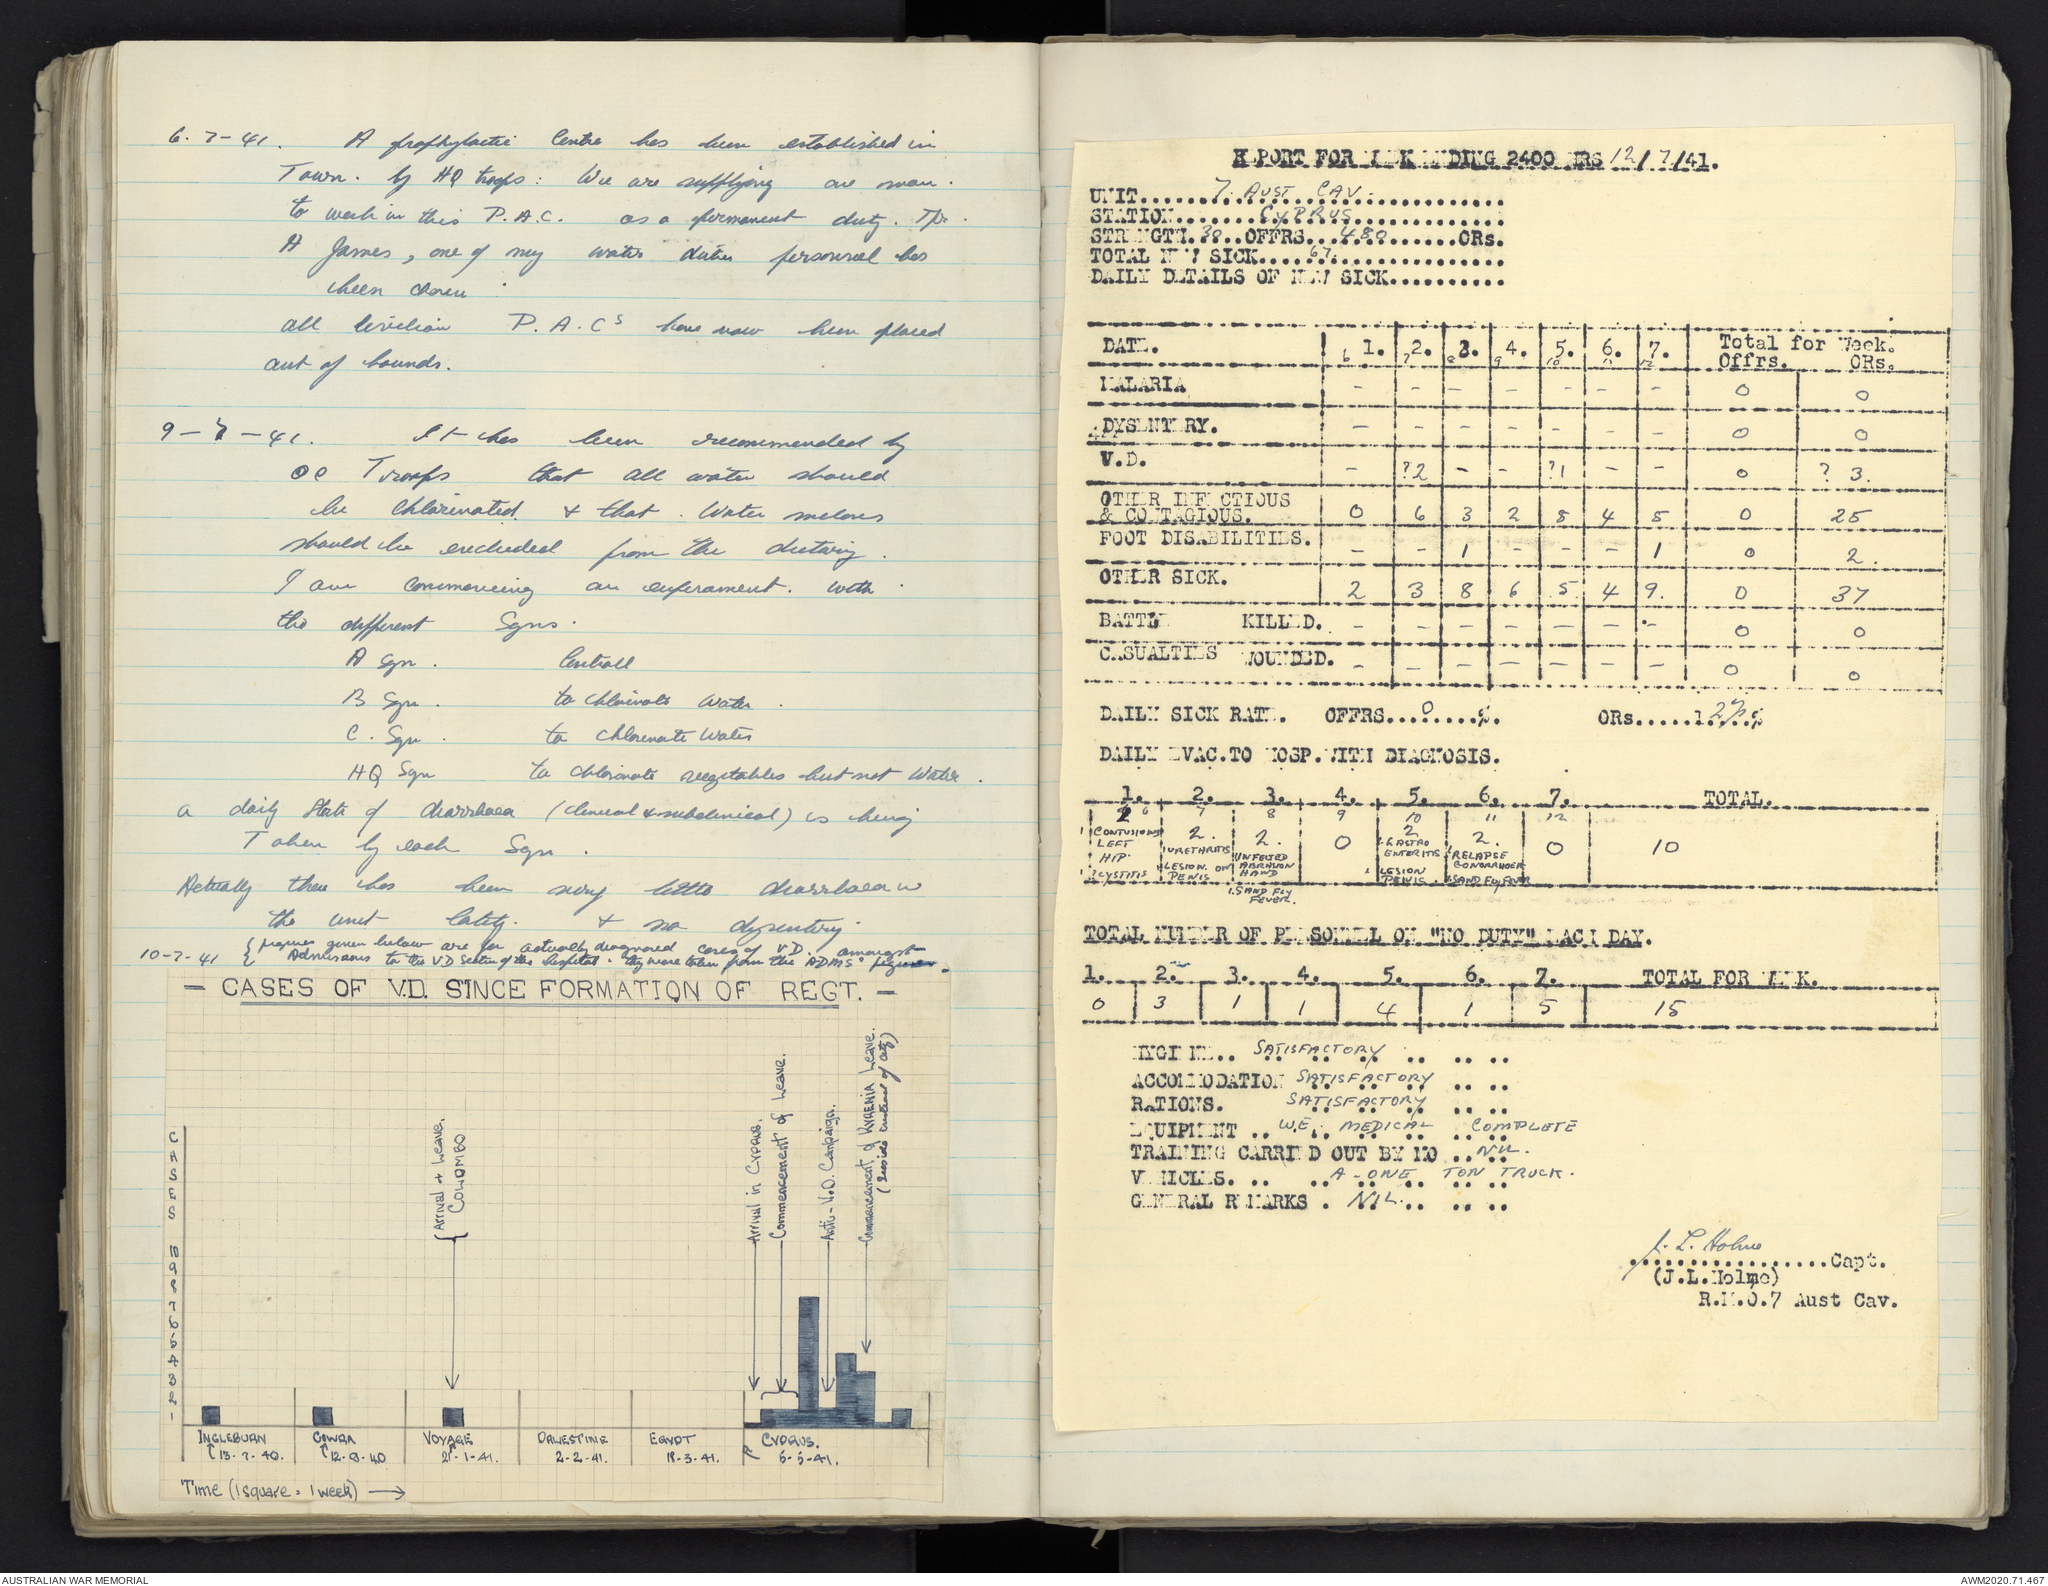 6.7-41. A prophylactic Centre has been established in
Town. by HQ troops: We are supplying one man.
to work in this P.A.C. as a permanent duty. Tpr.
A James, one of my water duties personnel has
been chosen
all civilian P.A.Cs have now been placed
out of bounds.
9-7-41. It has been recommended by
OC Troops that all water should
be Chlorinated & that. Water melons
should be excluded from the dietary.
I am commencing an experament. with
the different Sqns.
A Sqn. Controll
B Sqn. to chlorinate Water.
C. Sqn. to chlorinate Water
HQ Sqn to chlorinate vegetables but not Water.
a daily State of diarrhoea (clinical & subclinical) is being
Taken by each Sqn.
Actually there has been very little diarrhoea in
the unit lately. & no dysentery
10-7-41 { figures given below are for actually diagnosed cases of V.D. amongst
Admissions to the VD Section of the hospital. they were taken from the ADMS' figures.
- CASES OF V.D. SINCE FORMATION OF REGT. -
CASES
10
9
8
7
6
5
4
3
2
1
{Arrival & Leave.
COLOMBO
Arrival in Cyprus.
Commencement of Leave.
Anti-V.D. Campaign.
Commencement of KYRENIA Leave.
(Inside instead of city)
INGLEBURN GOWRA VOYAGE PALESTINE EGYPT CYPRUS.
13-7-40. 12-9-40 2-2-41. 18-3-41. 5-5-41.
Time (1 square = 1 week) →
REPORT FOR WEEK ENDING 2400 HRS 12/7/41.
UNIT.....7. AUST CAV...............
STATION.......CYPRUS...............
STRENGTH.30..OFFRS...480.......ORs.
TOTAL NEW SICK....67...............
DAILY DETAILS OF NEW SICK...........
DATE. 1. 2. 3. 4. 5. 6. 7. Total for Week.
6 7 8 9 10 11 12 Offrs. ORs.
MALARIA - - - - - - - 0 0
DYSENTERY. - - - - - - - 0 0
V.D. - ?2 - - ?1 - - 0 ? 3.
OTHER INFECTIOUS
& CONTAGIOUS. 0 6 3 2 5 4 5 0 25
FOOT DISABILITIES. - - 1 - - - 1 0 2.
OTHER SICK. 2 3 8 6 5 4 9. 0 37
BATTLE KILLED. - - - - - - - 0 0
CASUALTIES WOUNDED. - - - - - - - 0 0
DAILY SICK RATE. OFFRS....0.....%. ORs.....1.2%.%
DAILY EVAC.TO HOSP.WITH DIAGNOSIS.
1. 2. 3. 4. 5. 6. 7. TOTAL.
6 7 8 9 10 11 12
2 2. 2. 0 2 2. 0 10
1 CONTUSIONS LEFT HIP.
1 ?CYSTITIS
1 URETHRITIS
1 LESION ON PENIS
1 INFECTED ABRASION HAND
1. SAND FLY FEVER.
1. GASTRO ENTERITIS
1. LESION PENIS.
1. RELAPSE GONORRHOEA
1. SAND FLY FEVER
TOTAL NUMBER OF PERSONNEL ON "NO DUTY" EACH DAY.
1. 2. 3. 4. 5. 6. 7. TOTAL FOR WEEK.
0 3 1 1 4 1 5 15
HYGIENE.. SATISFACTORY .. .. ..
ACCOMMODATION SATISFACTORY .. ..
RATIONS. SATISFACTORY .. ..
EQUIPMENT .. W.E. MEDICAL COMPLETE
TRAINING CARRIED OUT BY MO ..NIL.
VEHICLES. .. A-ONE TON TRUCK.
GENERAL REMARKS . NIL... .. ..
J. L. Holme
.................Capt.
(J.L.Holme)
R.M.O.7 Aust Cav.
AUSTRALIAN WAR MEMORIAL
AWM2020.71.467